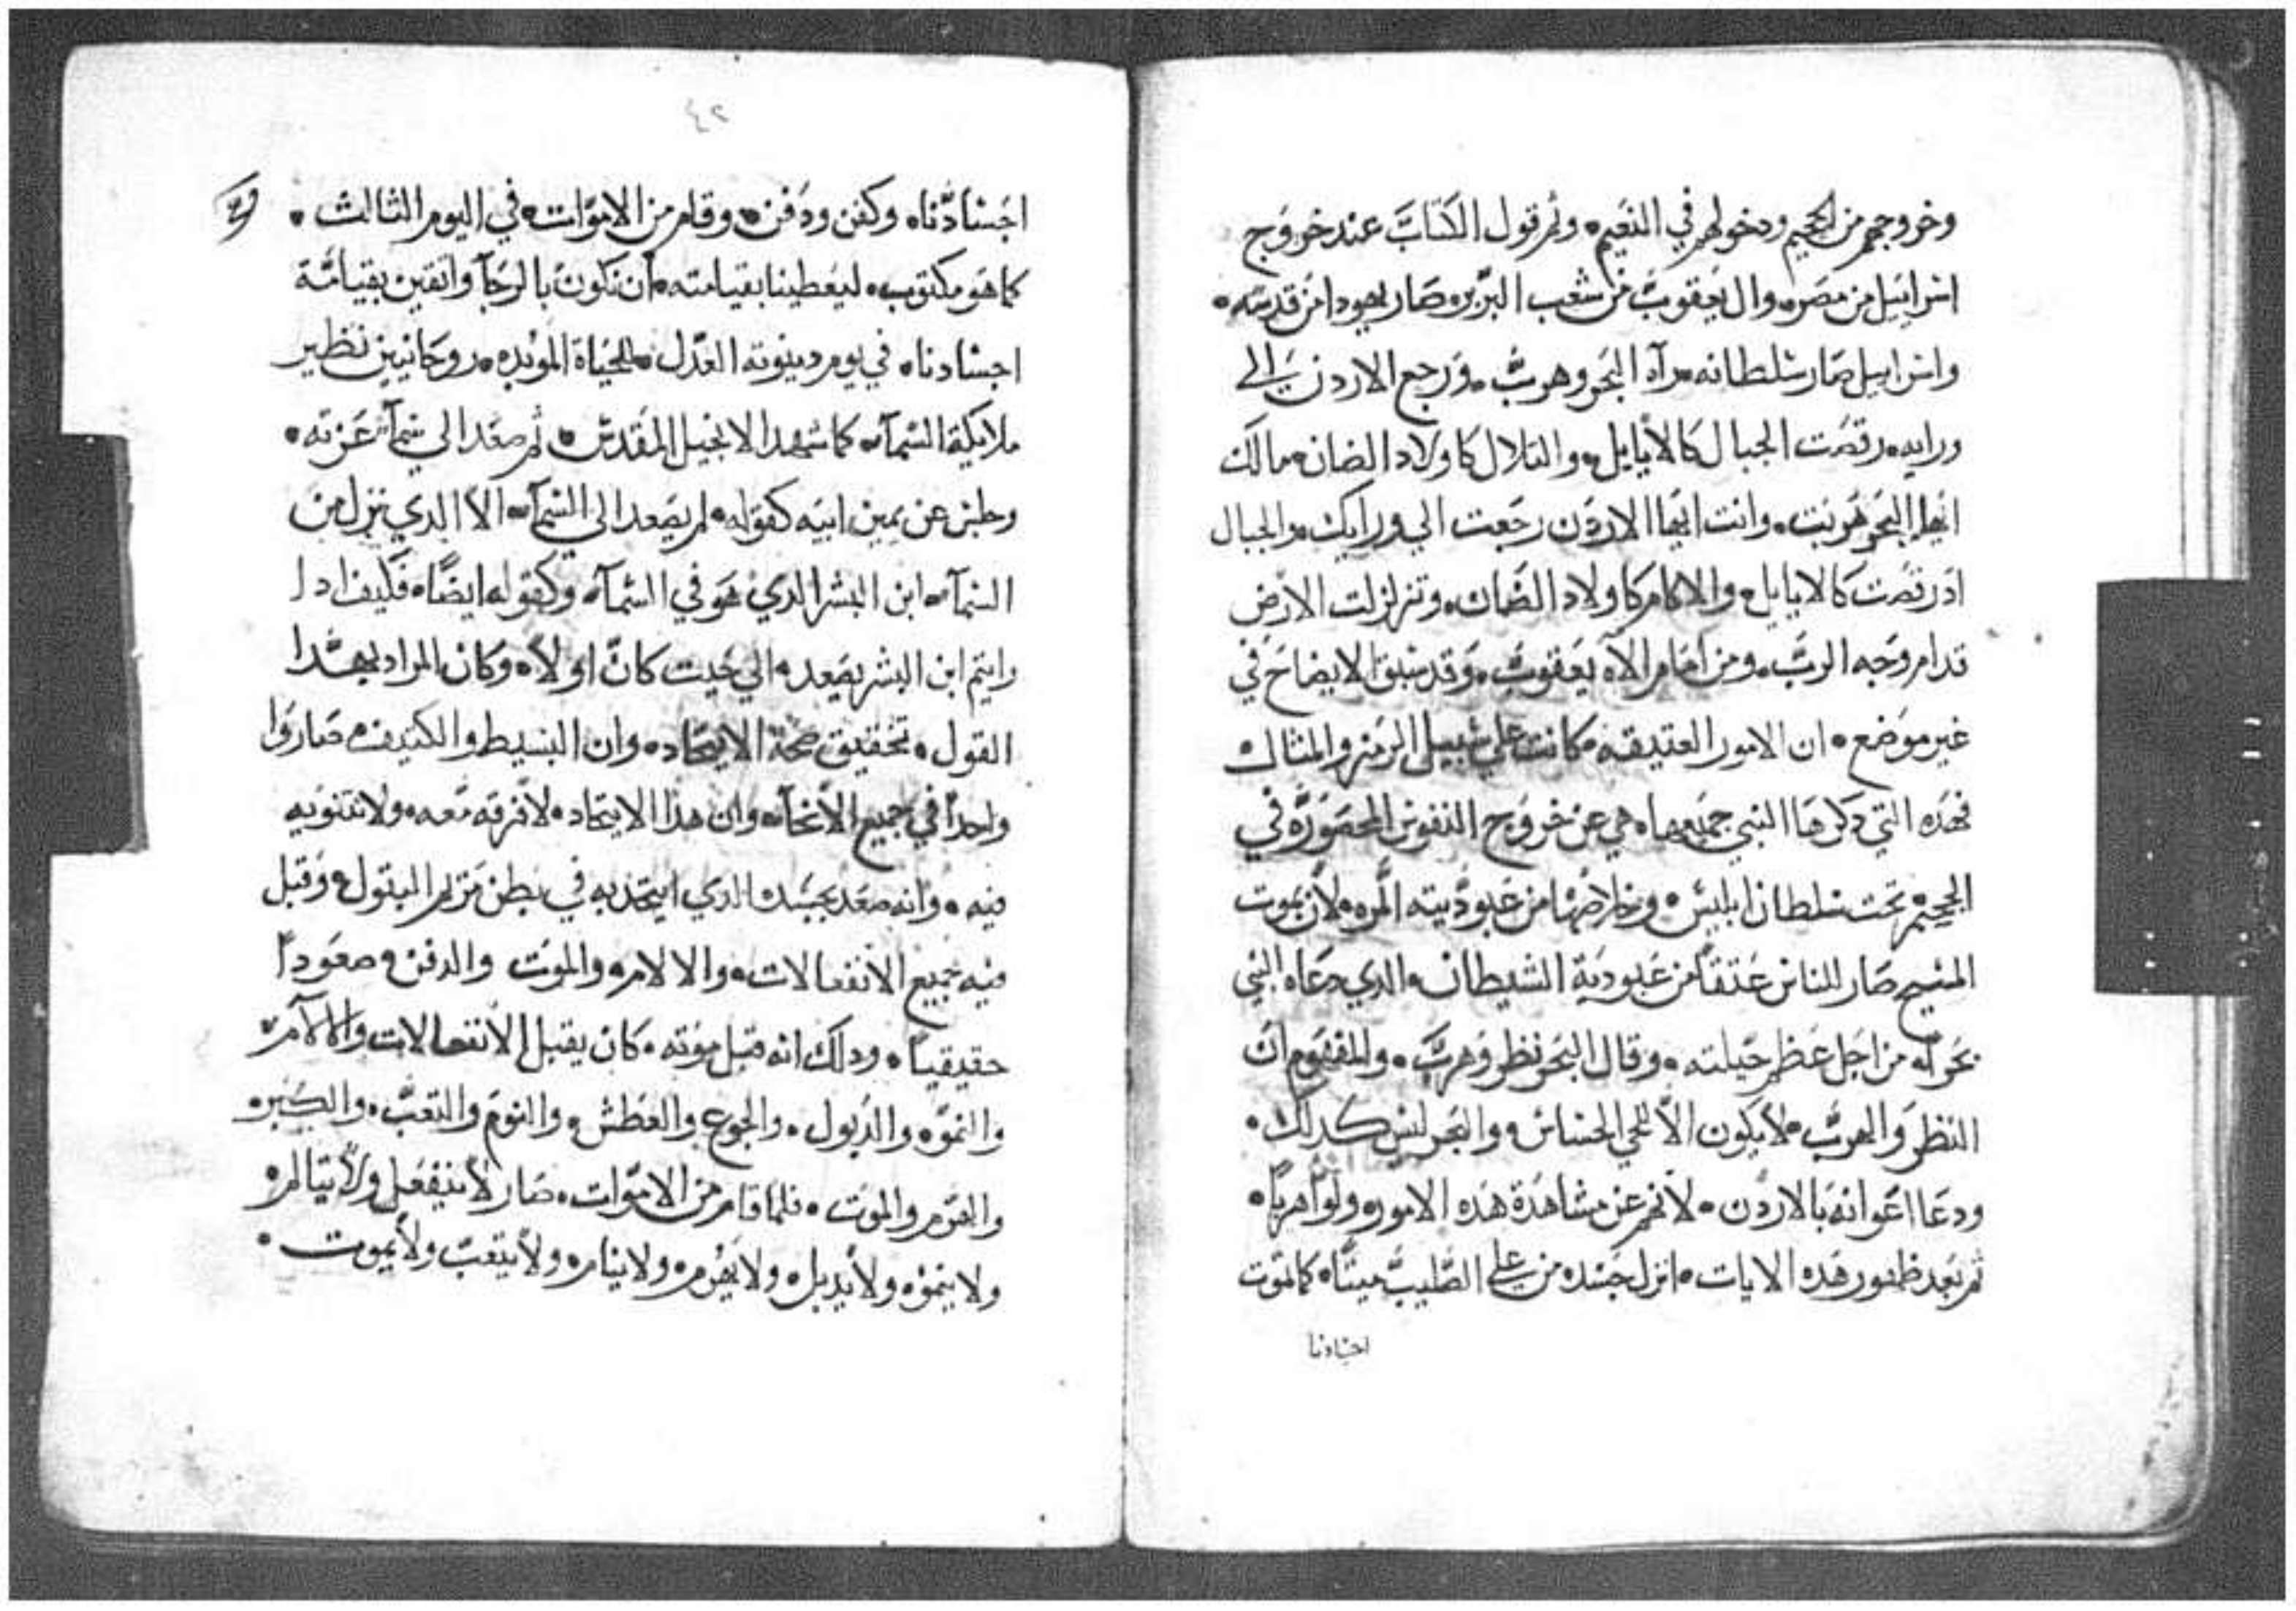 وخروجهم من الجحيم ودخولهم في النعيم ۰ وتم قول الكتاب عند خروج
اسراييل من مصر ۰ وال يعقوب من شعب البربر ۰ صار يهودا من قدسه ۰
واسراييل صار سلطانه ۰ رآه البحر وهرب ۰ ورجع الاردن الي
ورايه ۰ رقصت الجبال كالأيايل ۰ والتلال كاولاد الضان ۰ مالك
ايها البحر هربت ۰ وانت ايها الاردن رجعت الي ورايك ۰ والجبال
اد رقصت كالايايل ۰ والاكام كاولاد الضان ۰ وتزلزلت الارض
قدام وجه الرب ۰ ومن امام الاه يعقوب ۰ وقد سبق الايضاح في
غير موضع ۰ ان الامور العتيقه ۰ كانت علي سبيل الرمز والمثال
فهده التي دكرها النبي جميعها ۰ هي عن خروج النفوس المحصوره في
الجحيم تحت سلطان ابليس ۰ وخلاصها من عبوديته المره ۰ لأن بموت
المسيح صار للناس عتقاً من عبودية الشيطان ۰ الدي دعاه النبي
بحراً من اجل عظم حيلته ۰ وقال البحر نظر وهرب ۰ والمفهوم ان
النظر والهرب ۰ لا يكون الا للحي الحساس ۰ والبحر ليس كدلك ۰
ودعا اعوانه بالاردن ۰ لانهم عن مشاهدة هده الامور ۰ ولوا هرباً ۰
ثم بعد ظهور هده الايات ۰ انزل جسده من علي الصليب ميتاً ۰ كموت
اجسادنا
٤٢
اجسادنا ۰ وكفن ودفن ۰ وقام من الاموات ۰ في اليوم الثالث ۰
كما هو مكتوب ۰ ليعطينا بقيامته ۰ ان نكون بالرجآ واتقين بقيامة
اجسادنا ۰ في يوم دينونته العدل ۰ للحياة الموبده ۰ روحانيين نظير
ملايكة السمآء ۰ كما شهد الانجيل المقدس ۰ ثم صعد الي سمآء عزته ۰
وجلس عن يمين ابيه كقوله ۰ لم يصعد الي السمآء ۰ الا الدي نزل من
السمآء ۰ ابن البشر الدي هو في السمآء ۰ وكقوله ايضاً ۰ فكيف ادا
رايتم ابن البشر يصعد ۰ الي حيت كان اولاً ۰ وكان المراد بهدا
القول ۰ تحقيق صحة الاتحاد ۰ وان البسيط والكتيف ۰ صاروا
واحداً في جميع الأنحآء ۰ وان هدا الاتحاد ۰ لا فرقه معه ۰ ولا تتنويه
فيه ۰ وانه صعد بجسده الدي اتحد به في بطن مريم البتول ۰ وقبل
فيه جميع الانفعالات ۰ والالام ۰ والموت والدفن ۰ صعوداً
حقيقياً ۰ ودلك انه قبل موته ۰ كان يقبل الانفعالات والالآم ۰
والنمو ۰ والدبول ۰ والجوع والعطش ۰ والنوم والتعب ۰ والكبر ۰
والهرم والموت ۰ فلما قام من الاموات ۰ صار لا ينفعل ولا يتالم ۰
ولا ينمو ۰ ولا يدبل ۰ ولا يهرم ۰ ولا ينام ۰ ولا يتعب ولا يموت ۰